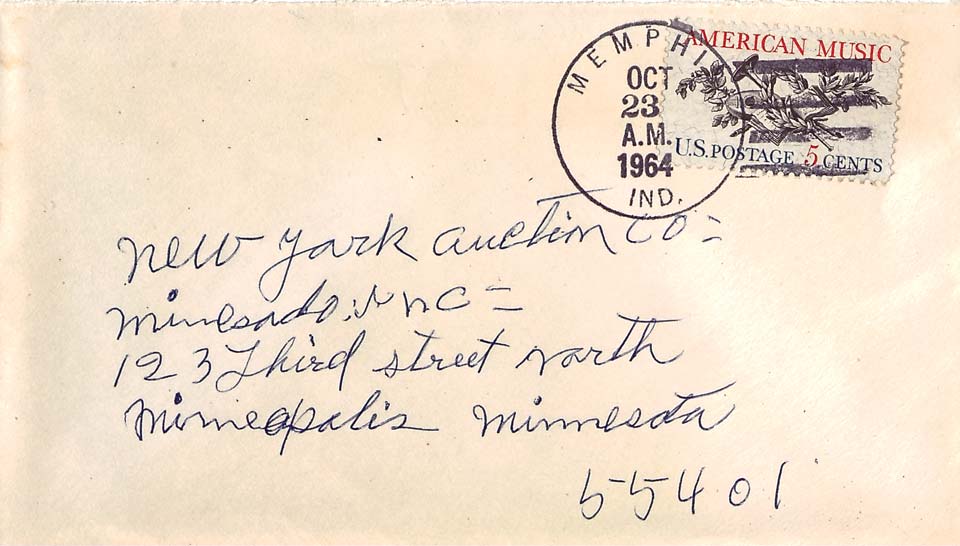 MEMPHI
OCT
23
A.M.
1964
IND.
AMERICAN MUSIC
U.S. POSTAGE 5 CENTS
New York Auction Co =
Minesado. Inc =
123 Third street north
Minneapolis Minnesota
55401